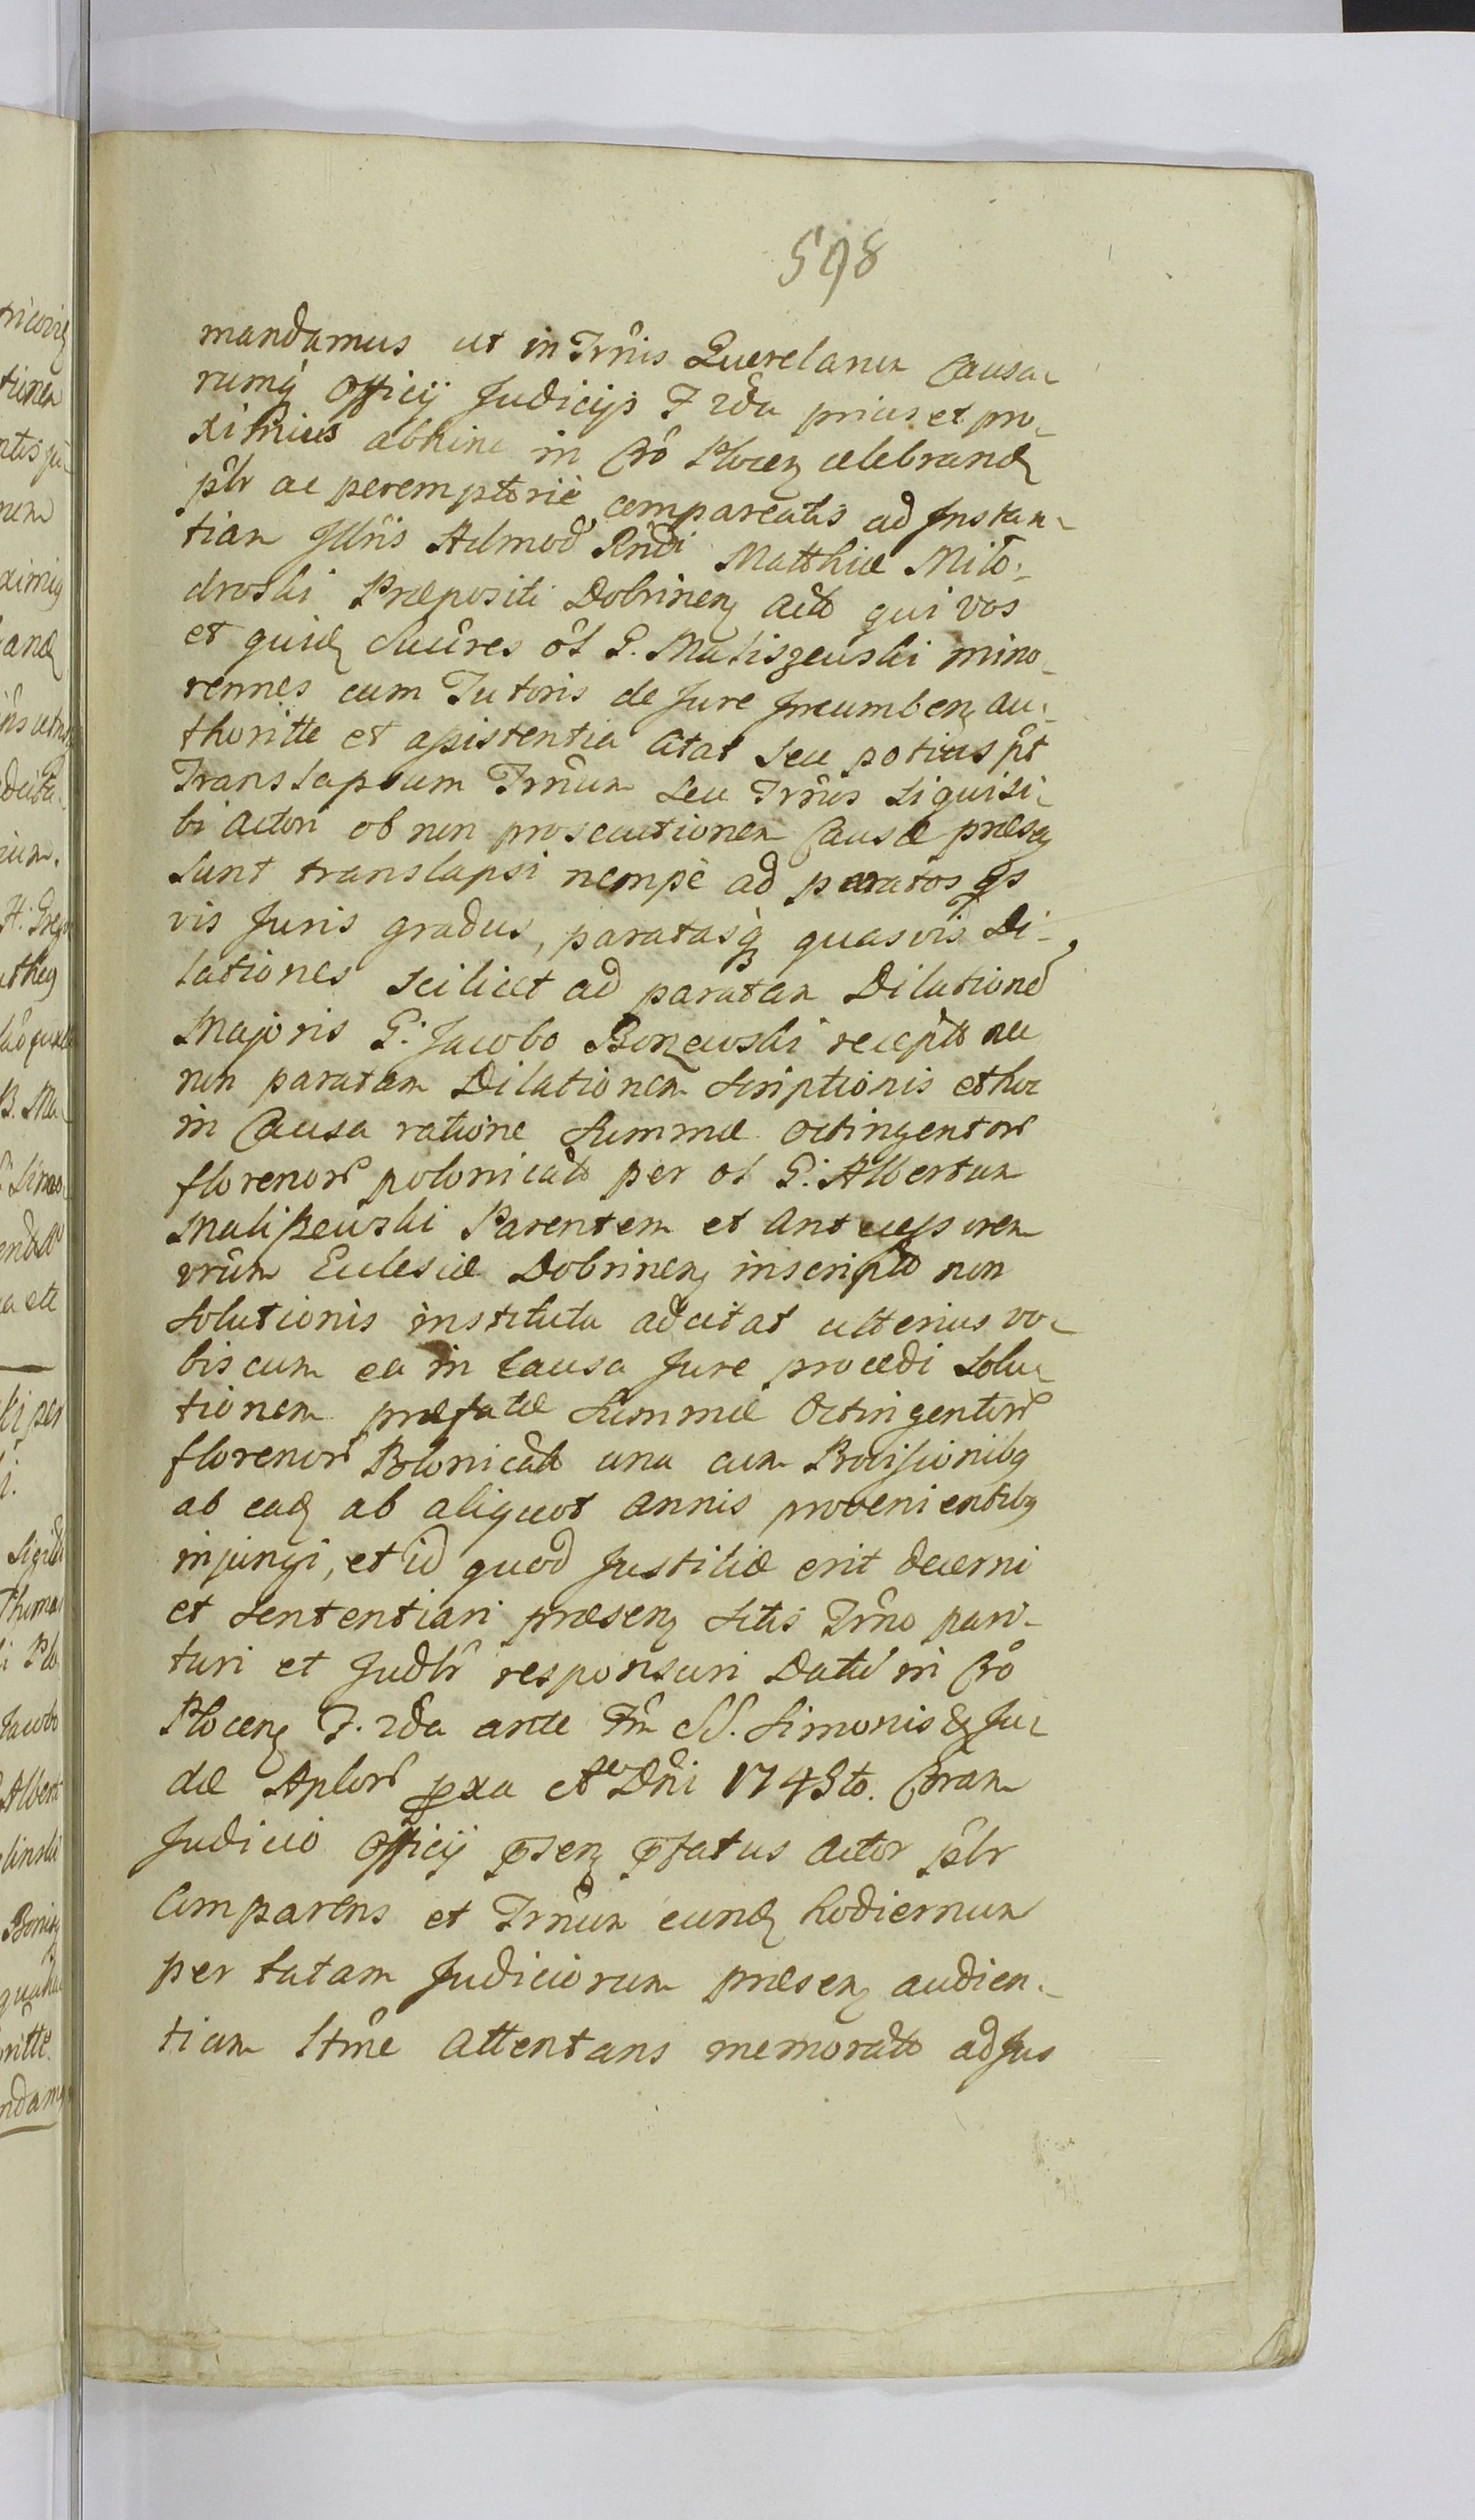 598
mandamus ut in Trñis Querelarum Causa-
rumq Officij Judicijs F 2da prius et pro-
ximius abhinc in Crô Plocen celebrand
pĺr ac peremptoriè compareatis ad Instan-
tiam Illris Admod Rndi Matthiæ Miło-
droski Præpositi Dobrinen Actô qui vos
et quid Succres ol G. Maliszewski mino-
rennes cum Tutoris de Jure Incumben au-
thoritte et assistentia Citat seu potius pt
Translapsum Trñum seu Trños siquisi-
bi Actori ob non prosecutionem Causæ præsen
sunt translapsi nempè ad paratos qs
vis Juris gradus, paratasq quasvis Di-
lationes scilicet ad paratam Dilationé
Majoris G: Jacobo Bonzewski receptô nec
non paratam Dilationem Scriptionis et hoc
in Causa ratione Summæ Octingentor
florenor polonicalô per ol G: Albertum
Malißewski Parentem et Antecessorem
vrûm Ecclesiæ Dobrinen inscriptô non
Solutionis instituta adcitat ulterius vo-
biscum ea in Causa Jure procedi Solu-
tionem præfatæ Summæ Octingentor
florenor Polonicalô una cum Provisionibq
ab ead ab aliquot annis provenientibq
injungi, et id quod Justitiæ erit decerni
et Sententiari præsen Sitis Trño pari-
turi et Judlr responsuri Datû in Crô
Plocen F. 2da ante Fm SS. Simonis & Ju-
dæ Aplor pxa Ae Dñi 1748to. Coram
Judicio Officij psen pfatus Actor pĺr
Comparens et Trñum eund hodiernum
per totam Judiciorum præsen audien-
tiam Itñe Attentans memoratô ad Jus